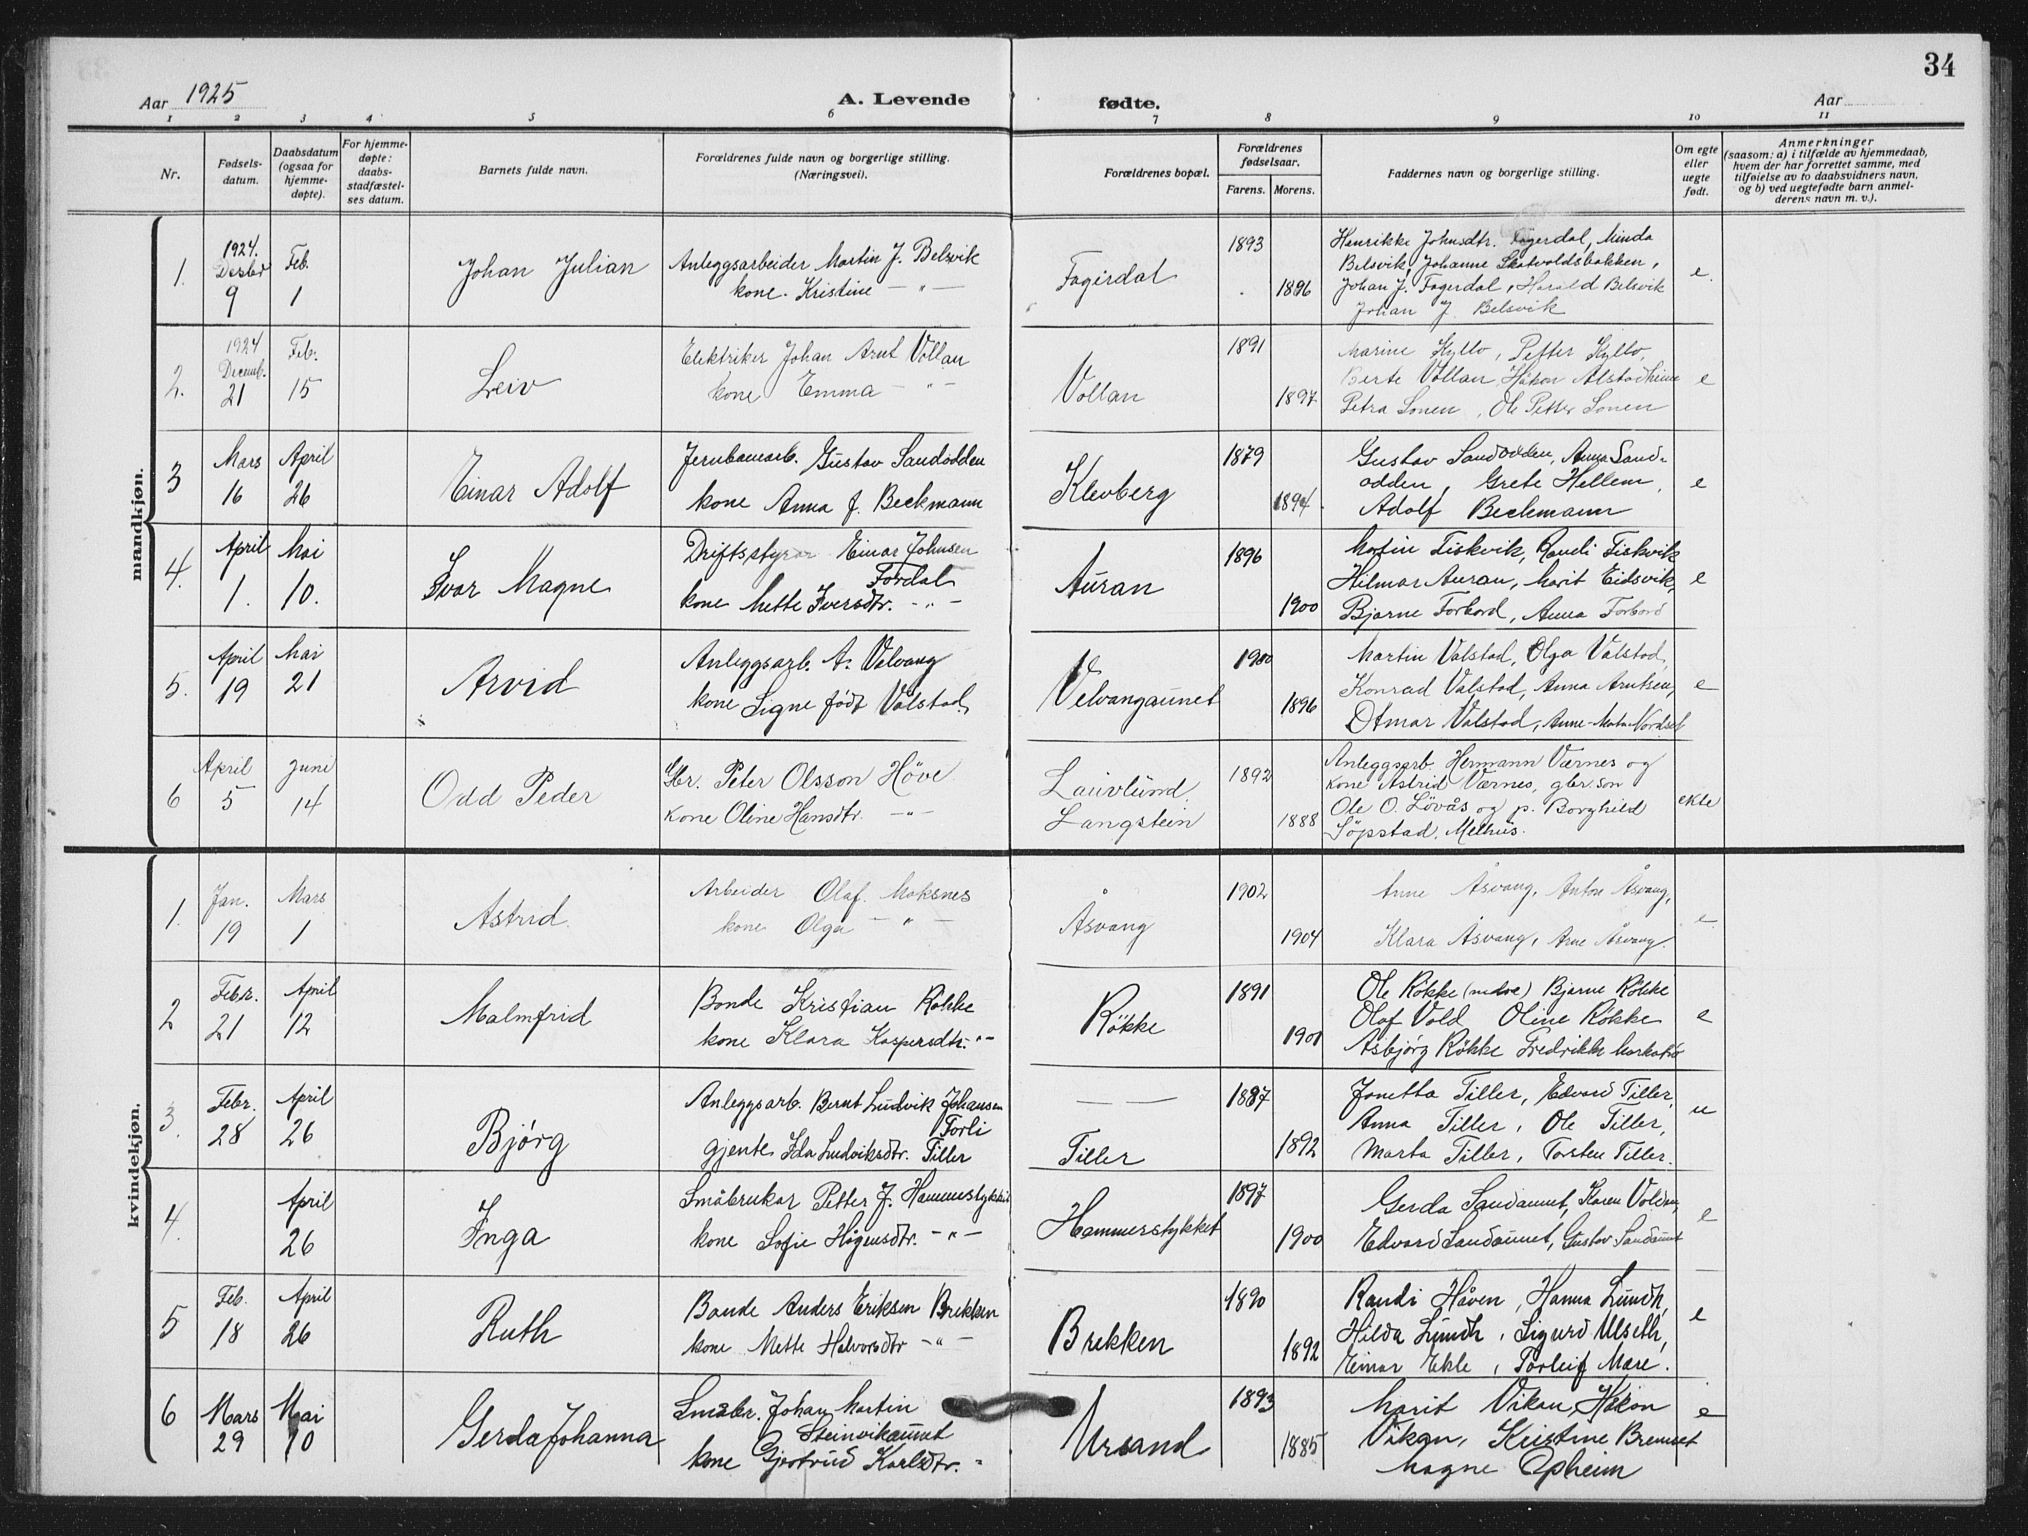 34
Aar 1925 A. Levende fødte. Aar
1 2 3 4 5 6 7 8 9 10 11
Nr.
Fødsels-
datum.
Daabsdatum
(ogsaa for
hjemme-
døpte).
For hjemme-
døpte:
daabs-
stadfæstel-
ses datum.
Barnets fulde navn.
Forældrenes fulde navn og borgerlige stilling.
(Næringsvei).
Forældrenes bopæl.
Forældrenes
fødselsaar.
Farens. Morens.
Faddernes navn og borgerlige stilling.
Om egte
eller
uegte
født.
Anmerkninger
(saasom: a) i tilfælde av hjemmedaab,
hvem der har forrettet samme, med
tilføielse av to daabsvidners navn,
og b) ved uegtefødte barn anmel-
derens navn m. v.).
mandkjøn.
1. 1924. Desbr 9 Feb. 1 Johan Julian
Anleggsarbeider Martin J. Belsvik
kone Kristine — " —
Fagerdal 1893 1896
Henrikke Johnsdtr. Fagerdal, Minda
Belsvik, Johanne Skatvoldsbakken,
Johan J. Fagerdal, Harald Belsvik
Johan J. Belsvik
e.
2. 1924 Decemb. 21 Feb. 15 Leiv
Elektriker Johan Arnt Vollan
kone Emma — " —
Vollan 1891 1897
Marine Kyllo, Petter Kyllo,
Berte Vollan, Håkon Alstadheim
Petra Sonen, Ole Petter Sonen
e
3 Mars 16 April 26 Einar Adolf
Jernbanearb. Gustav Sandodden
kone Anna f. Beckmann
Klevberg 1879 1894
Gustav Sandodden, Anna Sand-
odden, Grete Hellem,
Adolf Beckmann
e
4. April 1. Mai 10. Ivar Magne
Driftsstyrar Einar Johnsen
Fordal
kone Mette Iversdtr. — " —
Auran 1896 1900
Martin Fiskvik, Randi Fiskvik
Hilmar Auran, Marit Eidsvik,
Bjarne Forbord, Anna Forbord
e
5. April 19 Mai 21 Arvid
Anleggsarb. A. Velvang
kone Signe født Valstad
Velvangaunet 1900 1896
Martin Valstad, Olga Valstad,
Konrad Valstad, Anna Arntsen,
Otmar Valstad, Anne Nordset
e
6 April 5 Juni 14 Odd Peder
Gbr. Peter Olsson Höve
kone Oline Hansdtr. — " —
Lauvlund
Langstein 1892 1888
Anleggsarb. Hermann Værnes og
kone Astrid Værnes, gbr. son
Ole O. Lövås og p. Borghild
Söpstad. Melhus.
ekte
kvindekjøn.
1. Jan. 19 Mars 1 Astrid
Arbeider Olaf Moksnes
kone Olga — " —
Åsvang 1902 1904
Anne Åsvang, Anton Åsvang,
Klara Åsvang, Arne Åsvang.
e
2 Febr. 21 April 12 Malmfrid
Bonde Kristian Rökke
kone Klara Kaspersdtr. " —
Rökke 1891 1901
Ole Rökke (nedre) Bjarne Rökke
Olaf Vold Oline Rökke
Asbjörg Rökke Fredrikke
e
3. Febr. 28 April 26 Bjørg
Anleggsarb. Bernt Ludvik Johansen
Forli
gjente Ida Ludviksdtr. Tiller
— —
Tiller 1887 1892
Jonetta Tiller, Edvard Tiller,
Anna Tiller, Ole Tiller,
Marta Tiller, Torsten Tiller.
u
4. April 26 Inga
Småbrukar Petter J. Hammerstykket
kone Sofie Hågensdtr. — " —
Hammerstykket 1897 1900
Gerda Sandaunet, Karen
Edvard Sandaunet, Gustav Sandaunet
e
5 Feb. 18 April 26 Ruth
Bonde Anders Eriksen Brekken
kone Mette Halvorsdtr — " —
Brekken 1890 1892
Randi Håven, Hanna Lundh,
Hilda Lundh, Sigurd Ulseth,
Einar Ekle, Torleif Mære.
e
6 Mars 29 Mai 10 Gerda Johanna
Småbr. Johan Martin
Steinvikaunet
kone Gjertrud Karlsdtr. "
Ursand 1893 1885
Marit Vikan, Håkon
Vikan, Kristine Bremset
Magne Opheim
e